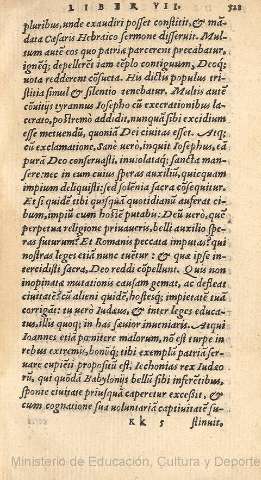 LIBER VII. 521
pluribus, unde exaudiri posset constitit, & mã
data Cæsaris Hebraico sermone disseruit. Mul-
tum autẽ eos quo patria parcerent precabatur,
ignẽq; depellerẽt iam tẽplo contiguum, Deoq;
uota redderent cõsueta. His dictis populus tri-
stitia simul & silentio tenebatur. Multis autẽ
cõuitijs tyrannus Iosepho cũ execrationibus la-
cerato, postremò addidit, nunquã sibi excidium
esse metuendũ, quoniã Dei ciuitas esset. Atq;
cũ exclamatione, Sanè uerò, inquit Iosephus, eã
purã Deo conseruasti, inuiolataq; sancta mane-
re: nec in eum cuius speras auxiliũ, quicquam
impium deliquisti: sed solẽnia sacra cõsequitur.
Et si quidẽ tibi quispiã quotidianũ auferat ci-
bum, impiũ cum hostẽ putabis: Deũ uerò, quẽ
perpetua religione priuaueris, belli auxilio spe-
ras futurum? Et Romanis peccata imputas? qui
nostras leges etiã nunc tuẽtur: & quæ ipse in-
tercidisti sacra, Deo reddi cõpellunt. Quis non
inopinatæ mutationis causam gemat, ac defleat
ciuitatẽ? cũ alieni quidẽ, hostesq; impietatẽ tuã
corrigãt: tu uerò Iudæus, & inter leges educa-
tus, illis quoq; in has sæuior inueniaris. Atqui
Ioannes etiã pœnitere malorum, nõ est turpe in
rebus extremis, bonũq; tibi exemplũ patriã ser-
uare cupiẽti propositũ est: Iechonias rex Iudæo
rũ, qui quodã Babylonijs bellũ sibi inferẽtibus,
sponte ciuitate priusquã caperetur excessit, &
cum cognatione sua uoluntariã captiuitatẽ su-
Kk 5 stinuit,
Ministerio de Educación, Cultura y Deporte